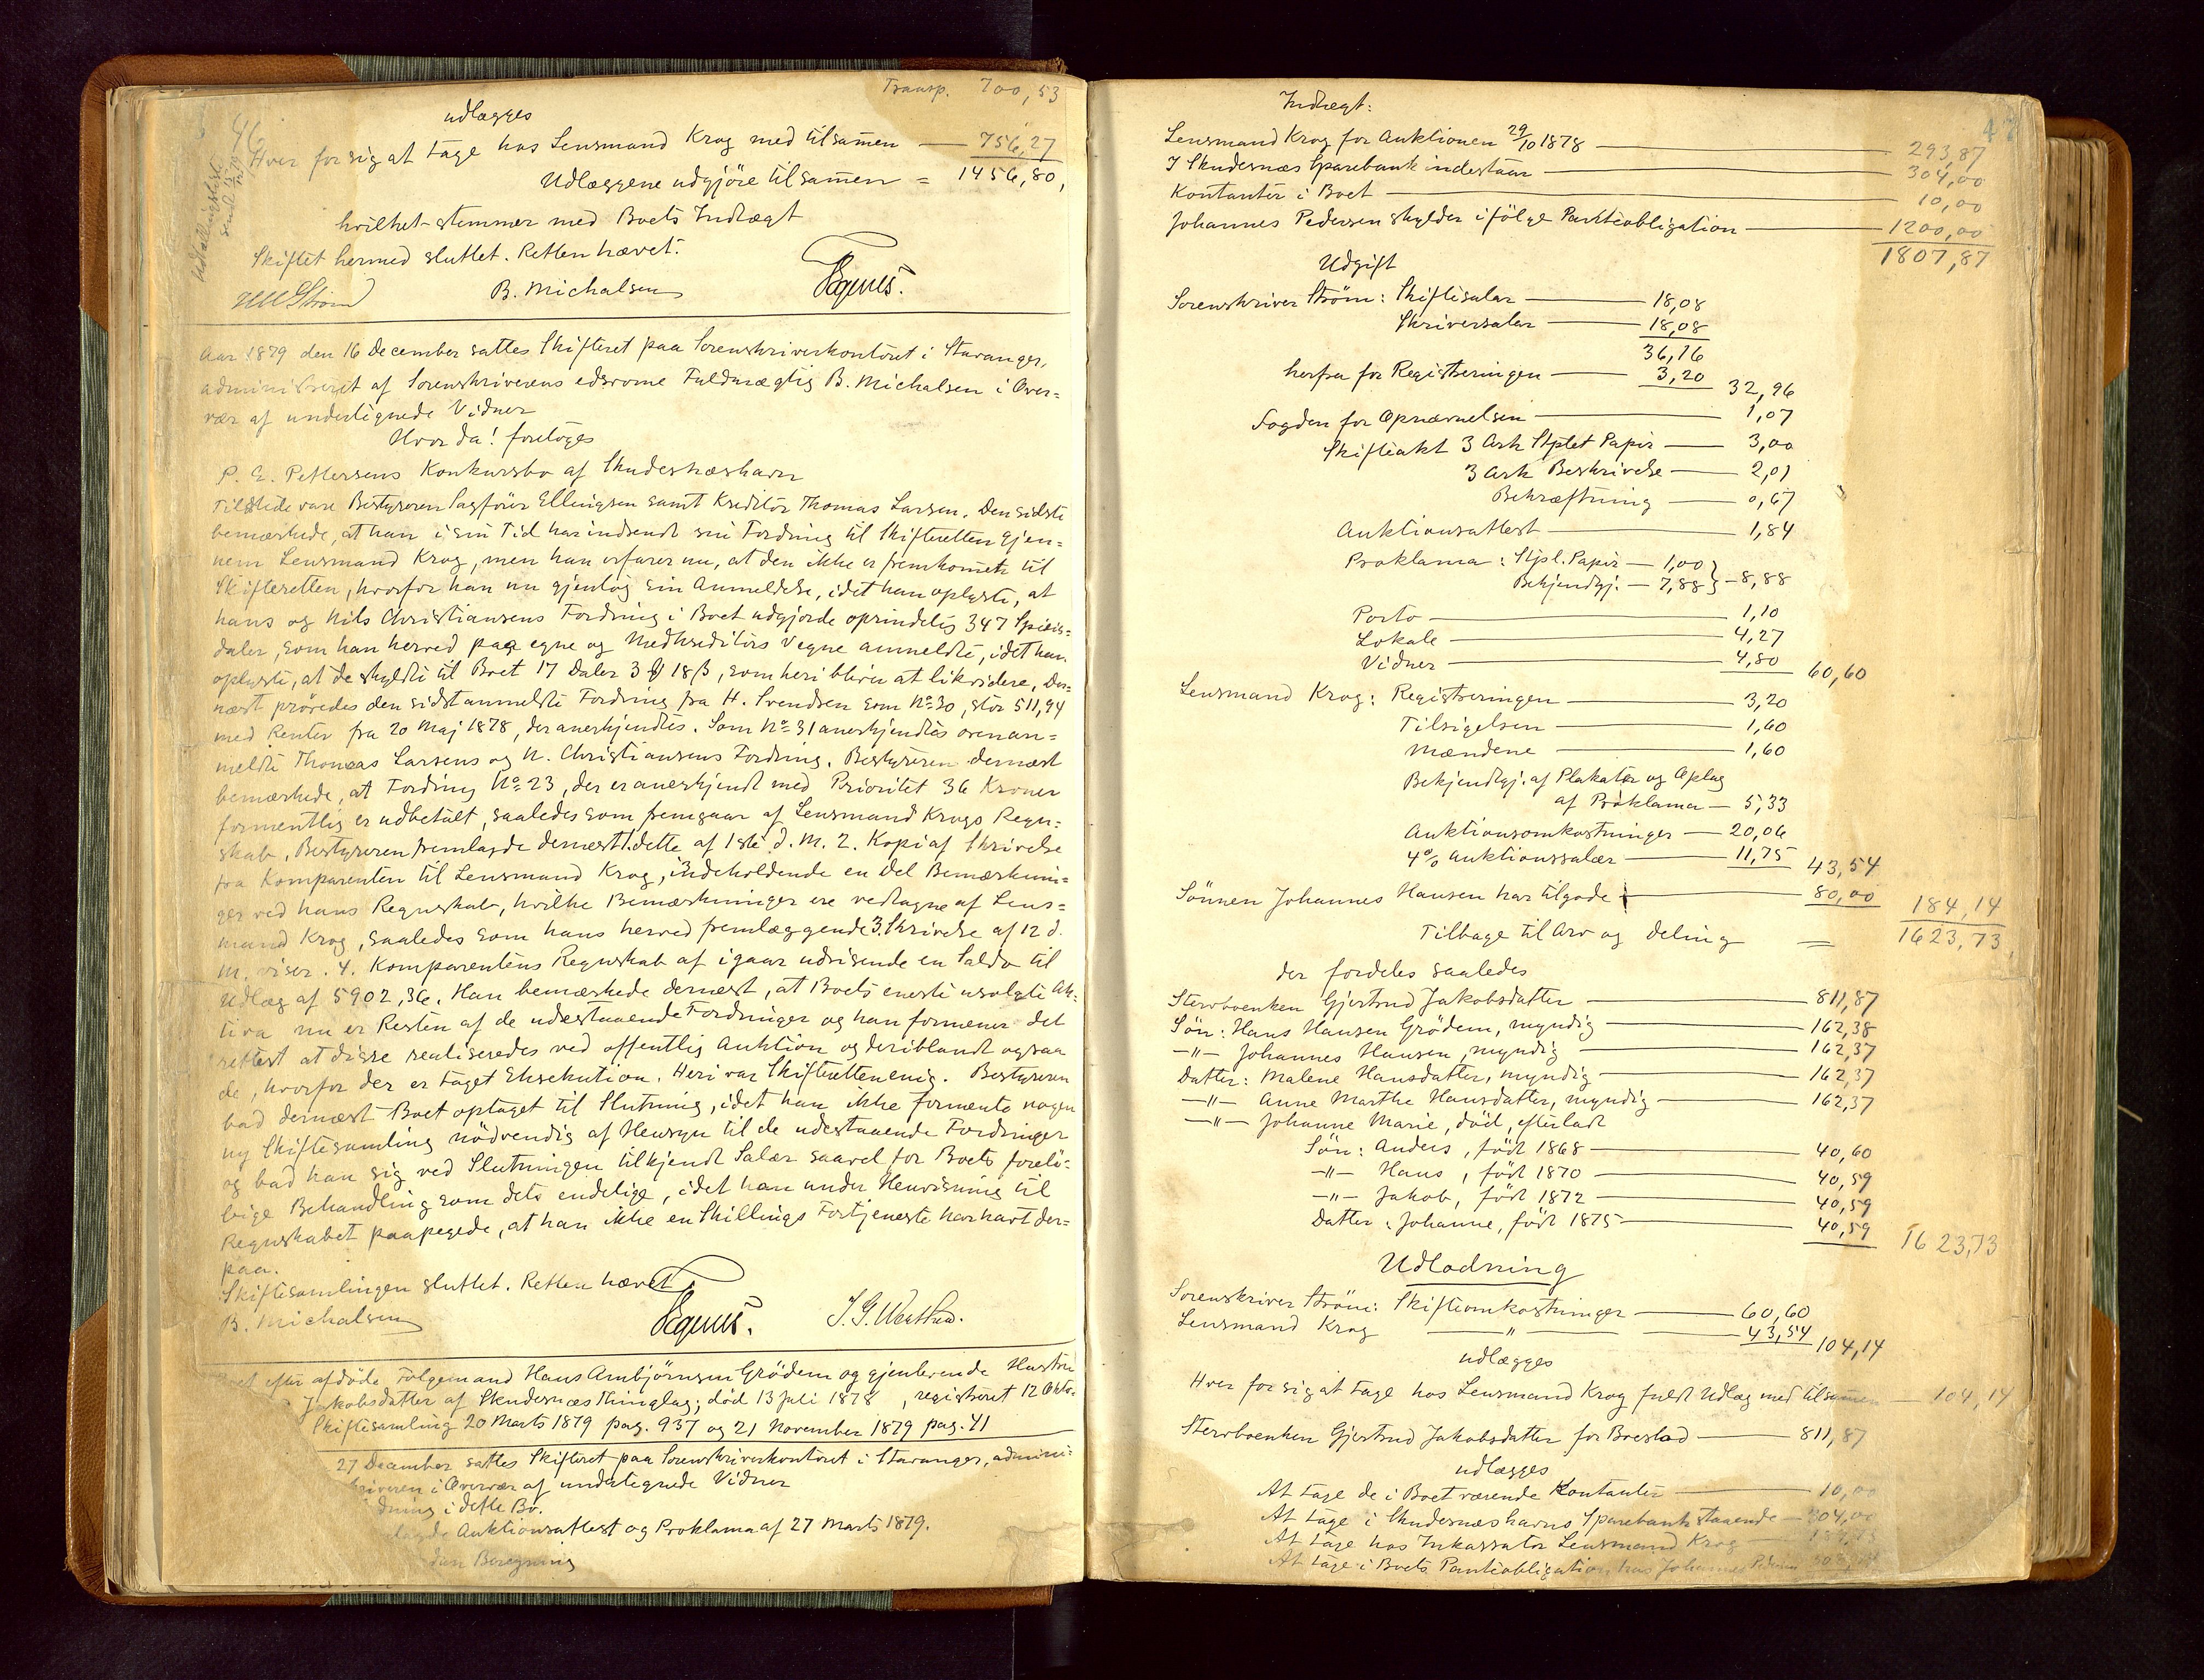 Transp. 700,53
46
udlægges
Hver for sig at tage hos Lensmand Krog med tilsamen — 756,27
Udlæggene udgjöre tilsamen = 1456,80,
hvilket stemmer med Boets Indtægt
Skiftet hermed sluttet. Retten hævet.
B. Michalsen
Aar 1879 den 16 December sattes Skifteret paa Sorenskriverkontoret i Stavanger,
administreret af Sorenskriverens edsvorne Fuldmægtig B. Michalsen i Over=
vær af undertegnede Vidner
Hvor da! foretoges
P. E. Pettersens Konkursbo af Skudesnæshavn
Tilstede vare Bestyreren Sagförer Ellingsen samt Kreditor Thomas Larsen. Den sidste
bemærkede, at han i sin Tid har indsendt sin Fordring til Skifteretten gjen=
nem Lensmand Krog, men han erfarer nu, at den ikke er fremkommet til
Skifteretten, hvorfor han nu gjentog sin Anmeldelse, idet han oplyste, at
hans og Nils Christiansens Fordring i Boet udgjorde oprindelig 347 Specie=
daler, som han herved paa egne og Medkreditors Vegne anmeldte, idet han
oplyste, at de skyldte til Boet 17 Daler 3 18 ß, som heri bliver at likvidere. Der=
næst prövedes den sidst anmeldte Fordring fra H. Svendsen som No 30, stor 511,94
med Renter fra 20 Maj 1878, der anerkjendtes. Som No 31 anerkjendtes ovenan=
meldte Thomas Larsens og N. Christiansens Fordring. Bestyreren dernæst
bemærkede, at Fordring No 23, der er anerkjendt med Prioritet 36 Kroner
formentlig er udbetalt, saaledes som fremgaar af Lensmand Krogs Regn=
skab. Bestyreren fremlagde dernæst 1. dette af 1ste d. M. 2. Kopi af Skrivelse
fra Komparenten til Lensmand Krog, indeholdende en Del Bemærknin=
ger ved hans Regnskab, hvilke Bemærkninger ere vedtagne af Lens=
mand Krog, saaledes som hans herved fremlæggende 3. Skrivelse af 12 d.
M. viser. 4. Komparentens Regnskab af igaar udvisende en Saldo til
Udlæg af 5902,36. Han bemærkede dernæst, at Boets eneste usolgte Ak=
tiva nu er Resten af de udestaaende Fordringer og han formener det
rettest at disse realiseredes ved offentlig Auktion og deriblandt ogsaa
de, hvorfor der er taget Eksekution. Heri var Skifteretten enig. Bestyreren
bad dernæst Boet optaget til Slutning, idet han ikke formente nogen
ny Skiftesamling nödvendig af Hensyn til de udestaaende Fordringer
og bad han sig ved Slutningen tilkjendt Salær saavel for Boets forelö=
bige Behandling som dets endelige, idet han under Henvisning til
Regnskabet paapegede, at han ikke en Skillings Fortjeneste har havt der=
paa.
Skiftesamlingen sluttet. Retten hævet.
B. Michalsen
Boet efter afdöde Fölgemand Hans Arnbjörnsen Grödem og gjenlevende Hustru
Jakobsdatter af Skudesnæs Thinglag; död 13 Juli 1878, registreret 12 Okto.
Skiftesamling 20 Marts 1879 pag. 937 og 21 November 1879 pag. 41
27 December sattes Skifteret paa Sorenskriverkontoret i Stavanger, admini=
skriveren i Overvær af undertegnede Vidner
dning i dette Bo.
Auktionsattest og Proklama af 27 Marts 1879.
Beregning
47
Indtægt:
Lensmand Krog for Auktionen 29/10 1878 — 293,87
I Skudesnæs Sparebank indestaar — 304,00
Kontanter i Boet — 10,00
Johannes Pedersen skylder ifölge Panteobligation — 1200,00
1807,87
Udgift
Sorenskriver Ström: Skiftesalær — 18,08
Skriversalær — 18,08
36,16
herfra for Registreringen — 3,20 32,96
Fogden for Opnævnelsen — 1,07
Skifteakt 3 Ark Stplet Papir — 3,00
3 Ark Beskrivelse — 2,01
Bekræftning — 0,67
Auktionsattest — 1,84
Proklama: Stpl. Papir — 1,00
Bekjendtgj. — 7,88 } — 8,88
Porto — 1,10
Lokale — 4,27
Vidner — 4,80 60,60
Lensmand Krog: Registreringen — 3,20
Tilsigelsen — 1,60
Mændene — 1,60
Bekjendtgj. af Plakater og Oplag
af Proklama — 5,33
Auktionsomkostninger — 20,06
4% Auktionssalær — 11,75 43,54
Sönnen Johannes Hansen har tilgode — 80,00 184,14
Tilbage til Arv og deling = 1623,73
der fordeles saaledes
Stervboenken Gjertrud Jakobsdatter — 811,87
Sön: Hans Hansen Grödem, myndig — 162,38
—"— Johannes Hansen, myndig — 162,37
Datter: Malene Hansdatter, myndig — 162,37
—"— Anne Marthe Hansdatter, myndig — 162,37
—"— Johanne Marie, död, efterladt
Sön: Anders, födt 1868 — 40,60
—"— Hans, födt 1870 — 40,59
—"— Jakob, födt 1872 — 40,59
Datter: Johanne, födt 1875 — 40,59 1623,73
Udlodning
Sorenskriver Ström: Skifteomkostninger — 60,60
Lensmand Krog —"— 43,54 104,14
udlægges
Hver for sig at tage hos Lensmand Krog fuldt Udlæg med tilsamen — 104,14
Stervboenken Gjertrud Jakobsdatter for Boeslod — 811,87
udlægges
At tage de i Boet værende Kontanter — 10,00
At tage i Skudesnæshavns Sparebank staaende — 304,00
At tage hos Inkassator Lensmand Krog
At tage i Boets Panteobligation hos Johannes